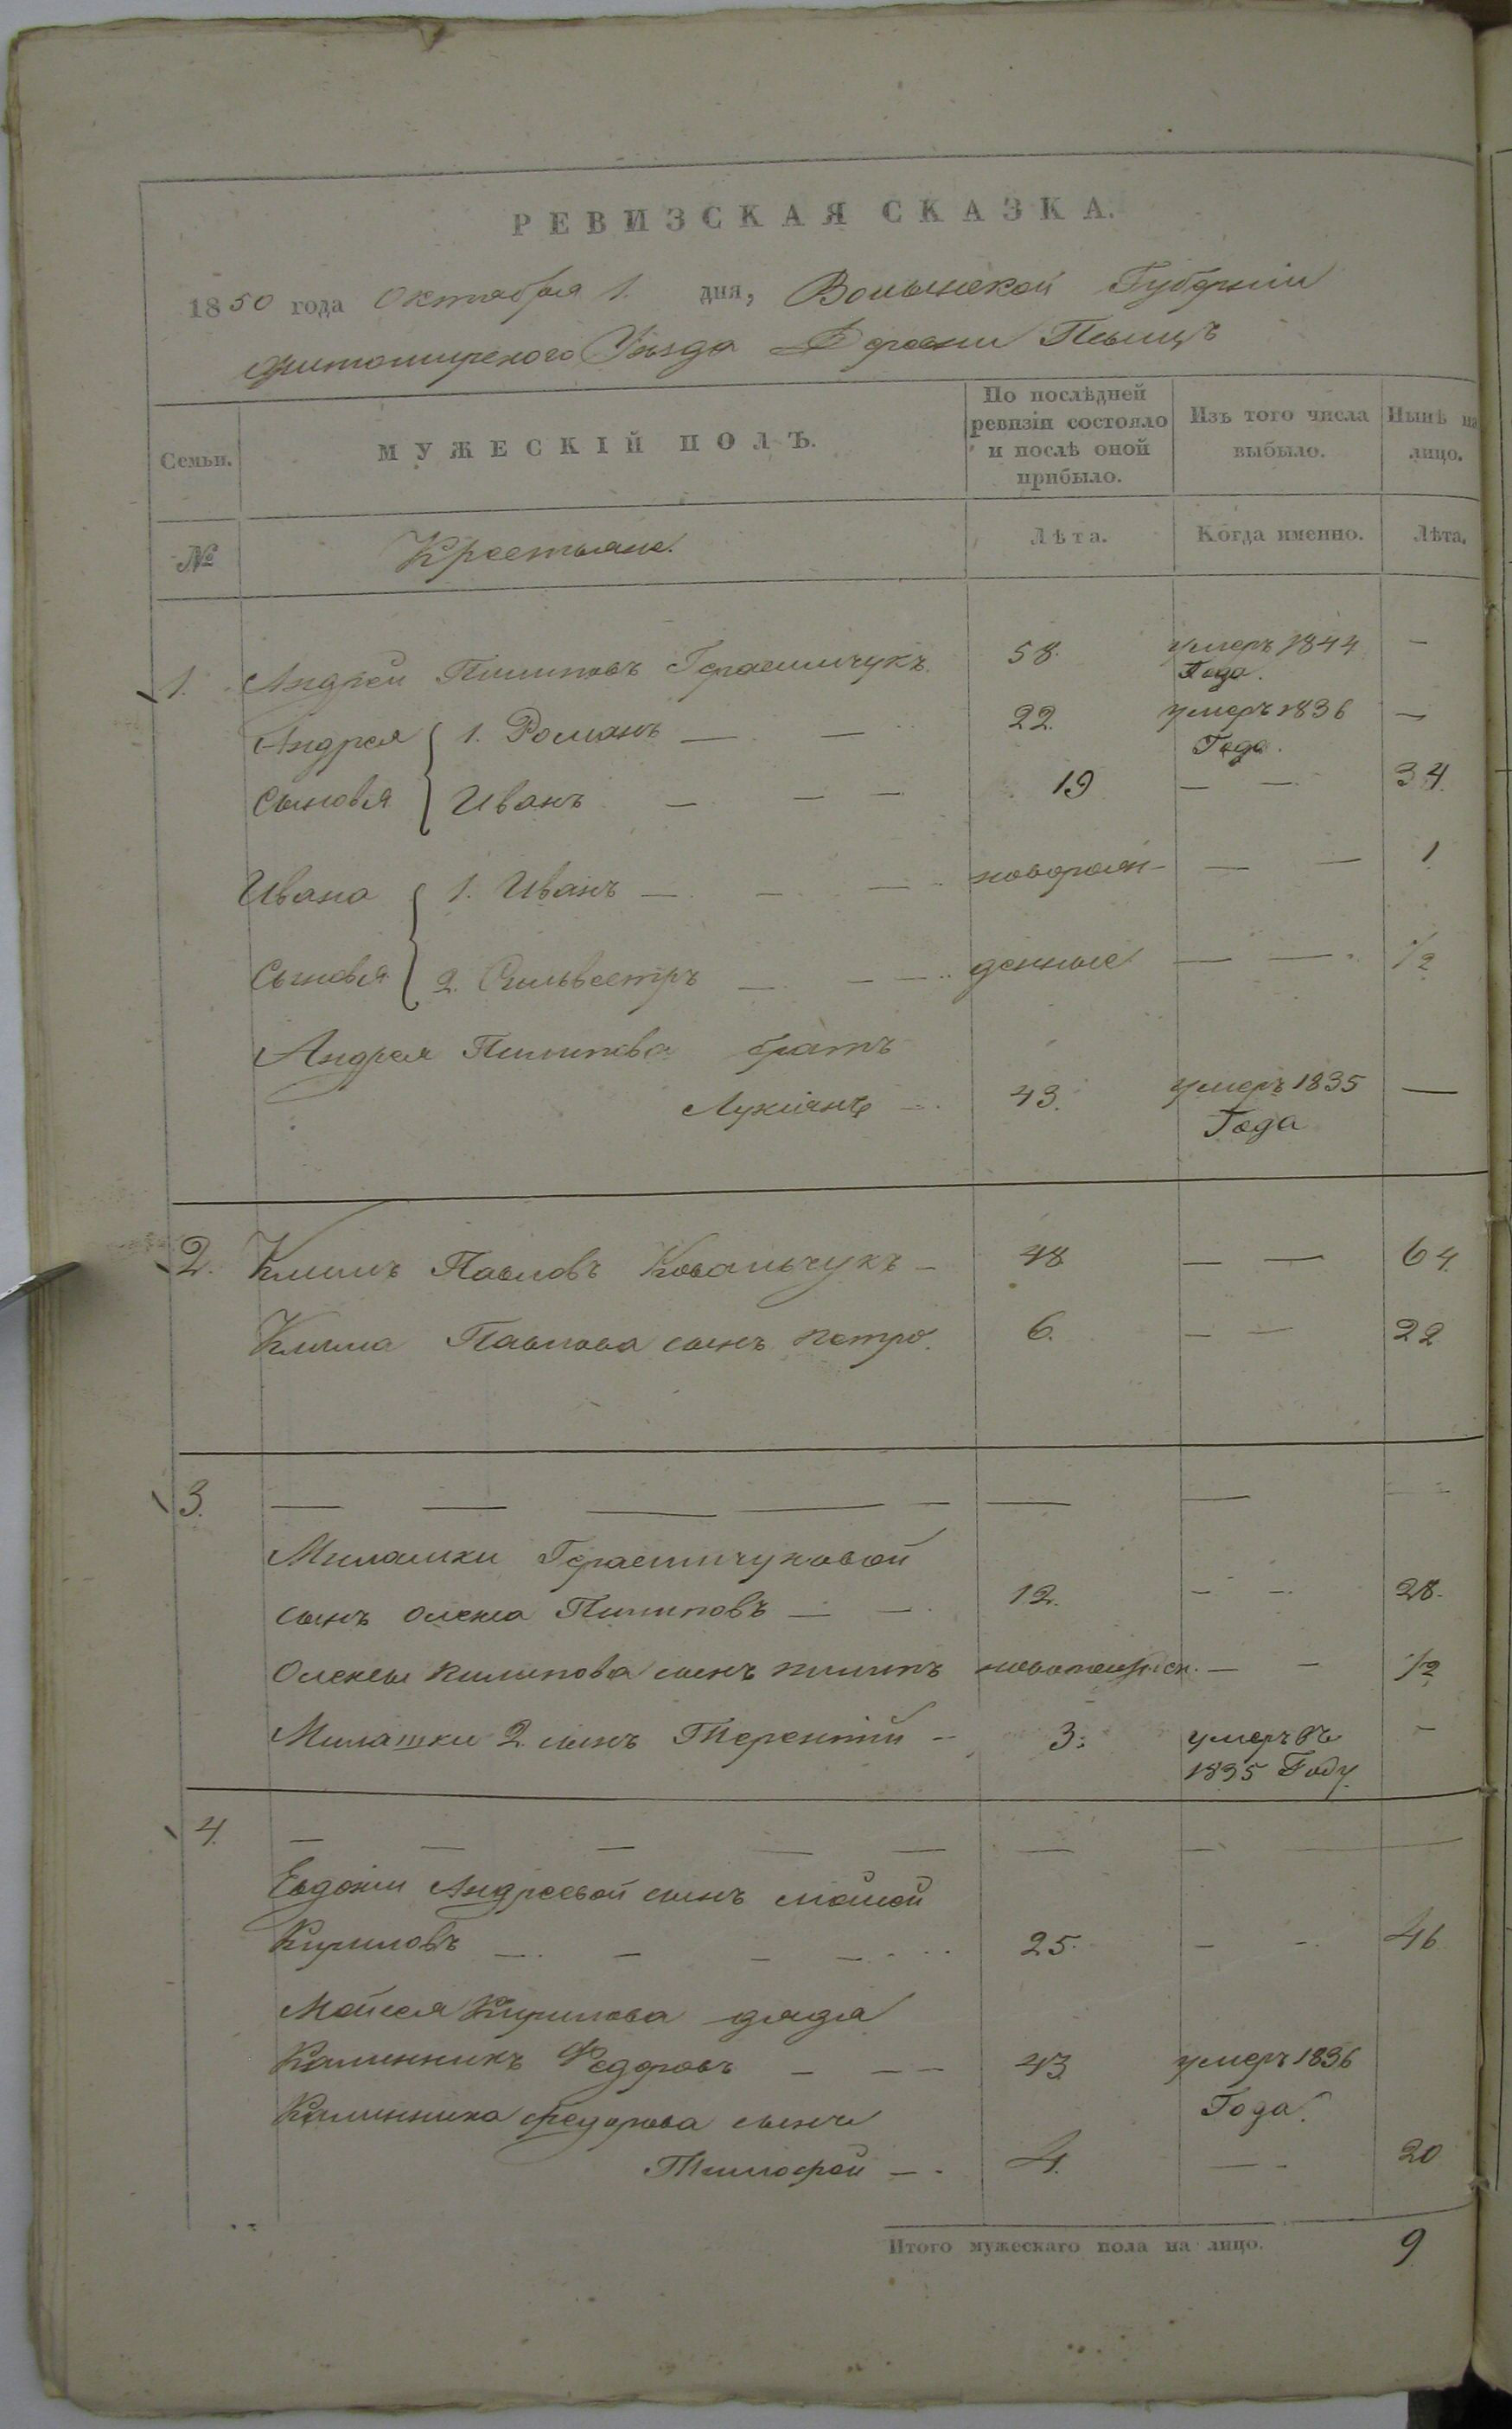 РЕВИЗСКАЯ СКАЗКА.
1850 года Октября 1. дня, Волынской Губерніи
Житомирского Уезда Деревни Псыщъ
Семьи.
МУЖЕСКІЙ ПОЛЪ.
По послѣдней ревизіи состояло и послѣ оной прибыло.
Изъ того числа выбыло.
Нынѣ на лицо.
№
Крестьяне.
Лѣта.
Когда именно.
Лѣта.
1. Андрей Пилиповъ Герасимчукъ 58. умеръ 1844 —
Года.
Андрея 1. Романъ — — 22. умеръ 1836 —
Года.
Сыновья Иванъ — — — 19 — — 34.
Ивана 1. Иванъ — — — новорож- — — 1
Сыновья 2. Сильвестръ — — — денные — — 1/2
Андрея Пилипова братъ
Лукіянъ — 43. умеръ 1835 —
Года
2. Климъ Павловъ Ковальчукъ — 48 — — 64.
Клима Павлова сынъ петро. 6. — — 22
3. — — — — — — — —
Милашки Герасимчуковой
сынъ олекса Пилиповъ — — 12. — — 28.
Олексы пилипова сынъ пилипъ — — 1/2
Милашки 2. сынъ Терентій — 3. умеръ въ —
1835 Году.
4. — — — — — — — —
Евдокіи Андреевой сынъ мойсей
Кириловъ — — — — 25. — — 46
Мойсея Кирилова дядя
Калинникъ Федоровъ — — — 43 умеръ 1836
Года.
Калинника федорова сынъ
Тимофей — 4. — — 20
Итого мужескаго пола на лицо. 9